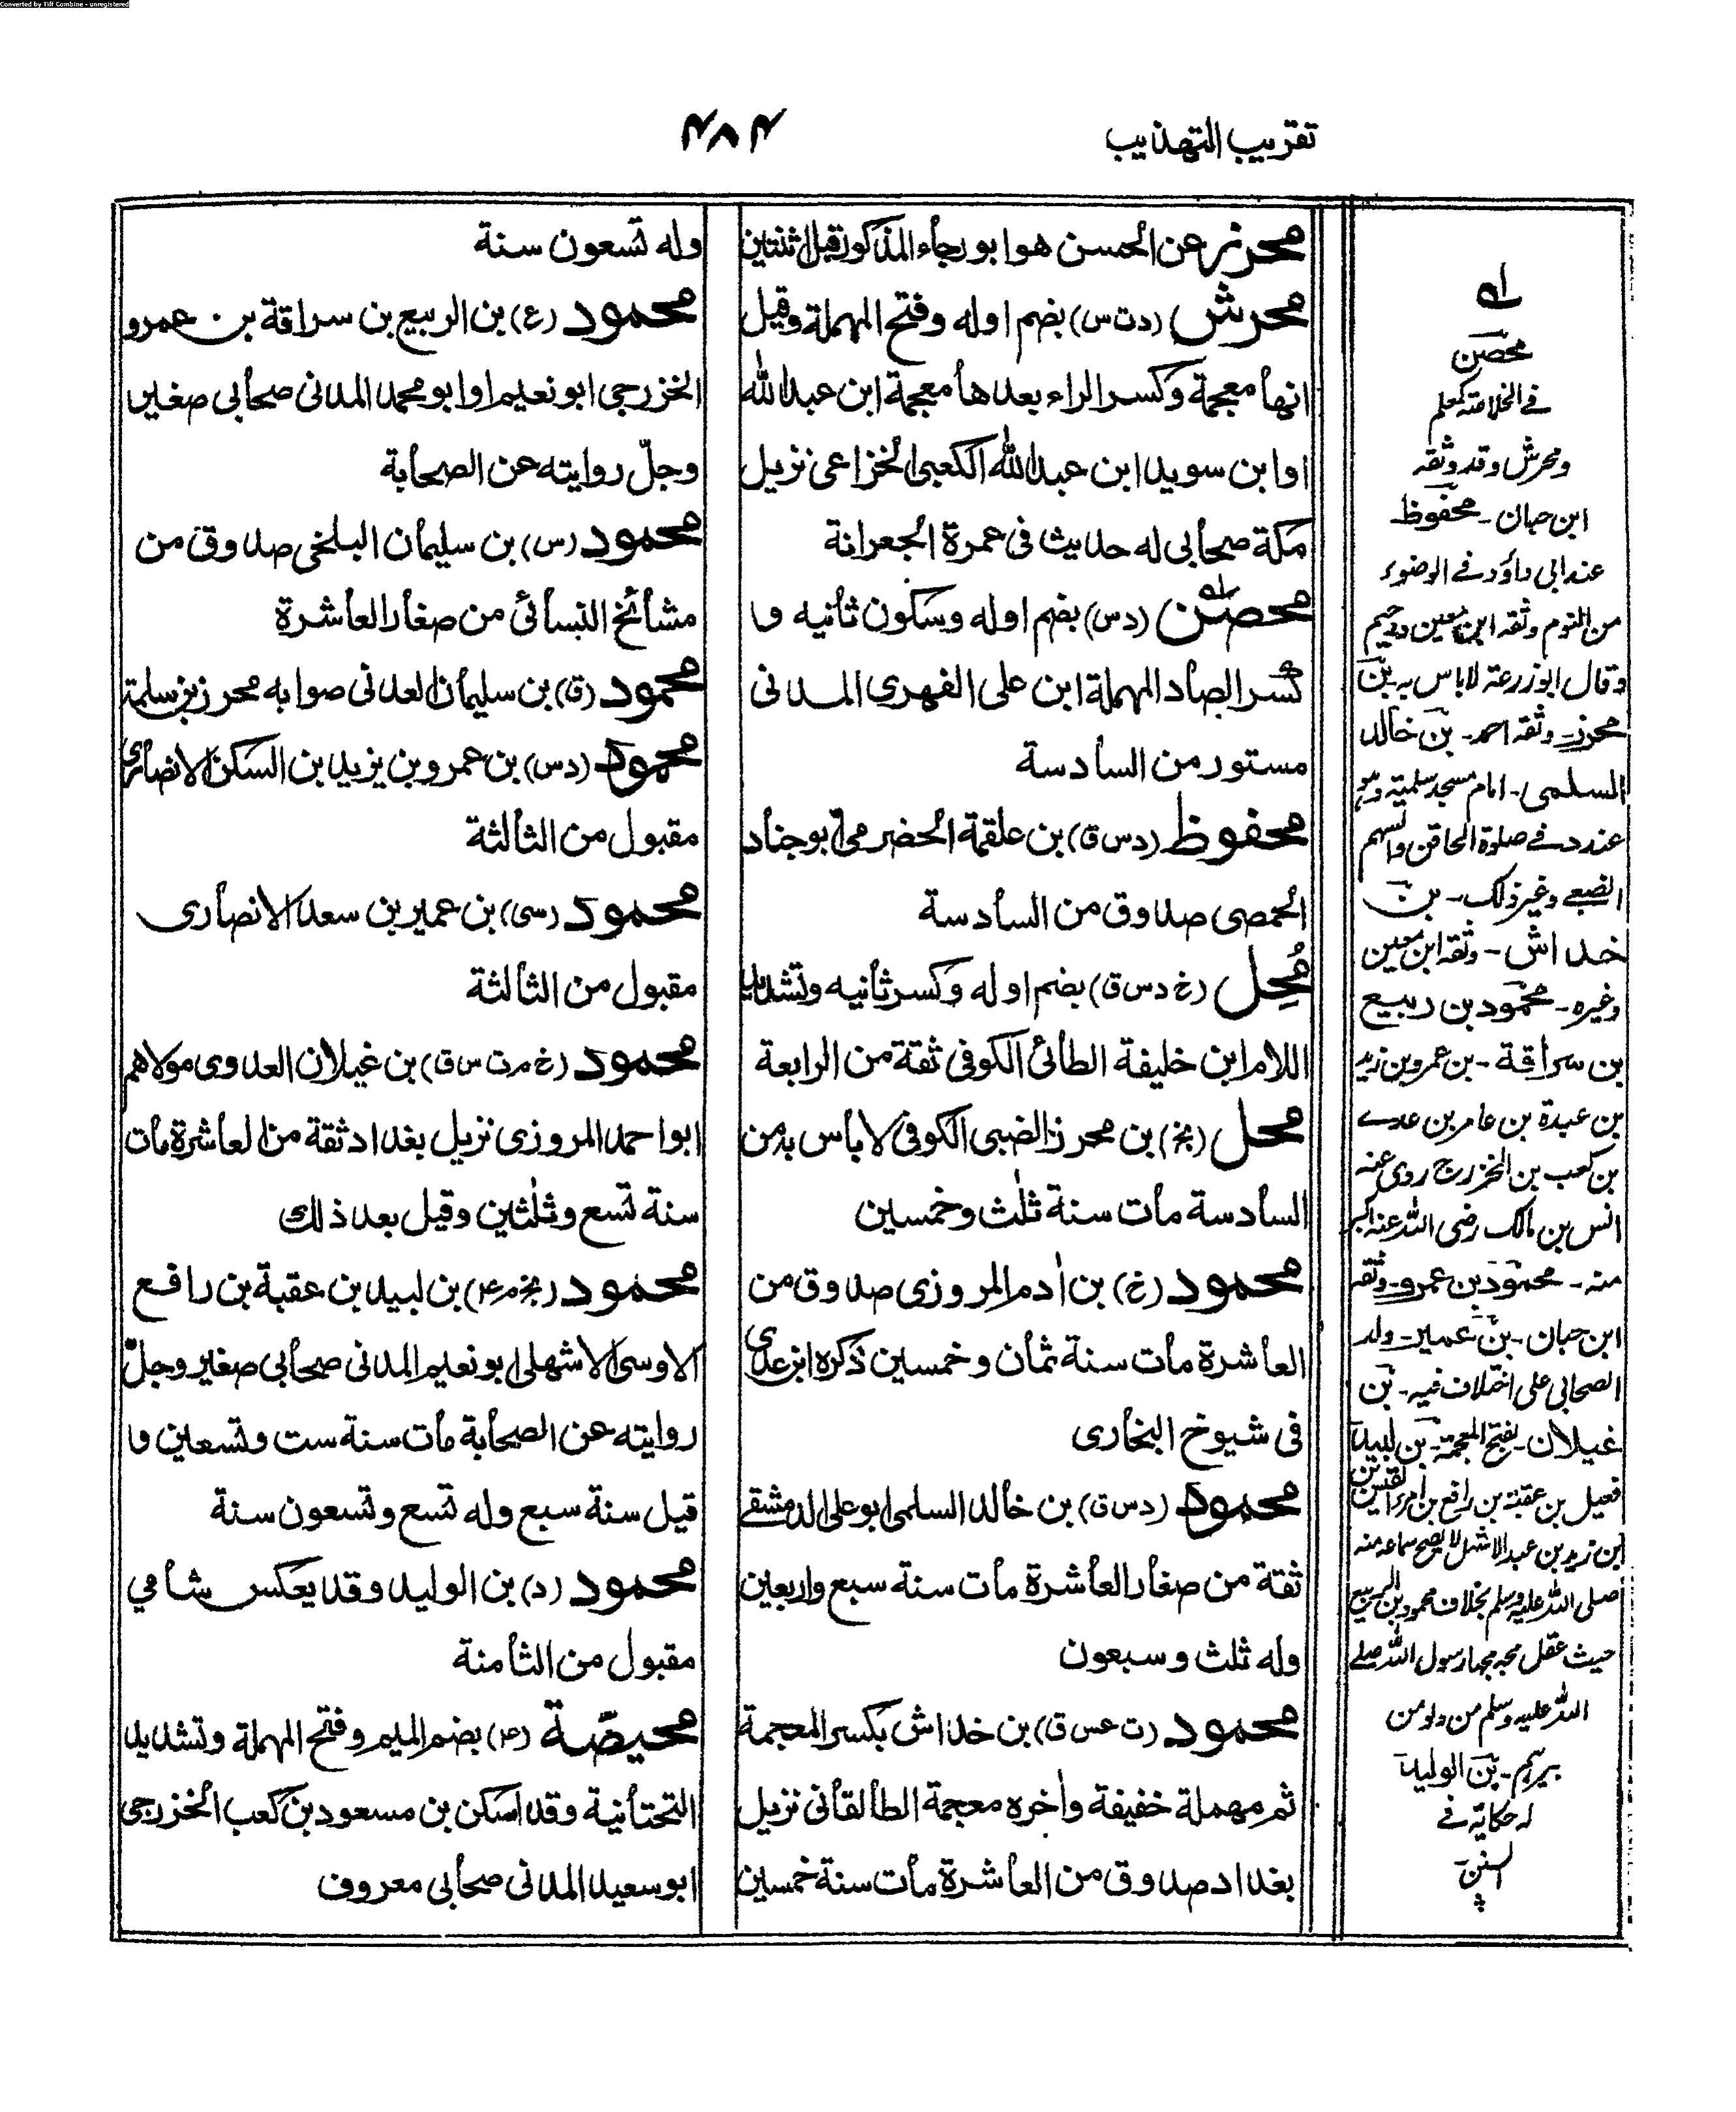 Converted by Tiff Combine - unregistered
تقريب التهذيب
٤٨٤
محرز عن الحسن هو ابو رجاء المذكور قبل ثنتين
محرش (دت س) بضم اوله وفتح المهملة وقيل
انها معجمة وكسر الراء بعدها معجمة ابن عبد الله
او ابن سويد ابن عبد الله الكعبى الخزاعى نزيل
مكة صحابى له حديث فى عمرة الجعرانة
محصن (دس) بضم اوله وسكون ثانيه و
كسر الصاد المهملة ابن على الفهرى المدنى
مستور من السادسة
محفوظ (دس ق) بن علقمة الحضرمى ابو جنادة
الحمصى صدوق من السادسة
مُحِل (خ دس ق) بضم اوله وكسر ثانيه وتشديد
اللام ابن خليفة الطائى الكوفى ثقة من الرابعة
محل (بخ) بن محرز الضبى الكوفى لا باس به من
السادسة مات سنة ثلٰث وخمسين
محمود (خ) بن اٰدم المروزى صدوق من
العاشرة مات سنة ثمان وخمسين ذكره ابن عدى
فى شيوخ البخارى
محمود (دس ق) بن خالد السلمى ابو على الدمشقے
ثقة من صغار العاشرة مات سنة سبع واربعين
وله ثلث وسبعون
محمود (ت عس ق) بن خداش بكسر المعجمة
ثم مهملة خفيفة واٰخره معجمة الطالقانى نزيل
بغداد صدوق من العاشرة مات سنة خمسين
وله تسعون سنة
محمود (ع) بن الربيع بن سراقة بن عمرو
الخزرجى ابو نعيم او ابو محمد المدنى صحابى صغير
وجلّ روايته عن الصحابة
محمود (س) بن سليمان البلخى صدوق من
مشائخ النسائى من صغار العاشرة
محمود (ق) بن سليمان العدنى صوابه محرز بن سلمة
محمود (دس) بن عمرو بن يزيد بن السكن الانصارى
مقبول من الثالثة
محمود (سى) بن عمير بن سعد الانصارى
مقبول من الثالثة
محمود (خ م ت س ق) بن غيلان العدوى مولاهم
ابو احمد المروزى نزيل بغداد ثقة من العاشرة مات
سنة تسع وثلٰثين وقيل بعد ذلك
محمود (بخ م ٤) بن لبيد بن عقبة بن رافع
الاوسى الاشهلى ابو نعيم المدنى صحابى صغير وجلّ
روايته عن الصحابة مات سنة ست وتسعين و
قيل سنة سبع وله تسع وتسعون سنة
محمود (د) بن الوليد وقد يعكس شامي
مقبول من الثامنة
محيصّة (٤) بضم الميم وفتح المهملة وتشديد
التحتانية وقد تسكن بن مسعود بن كعب الخزرجى
ابو سعيد المدنى صحابى معروف
محصن
فے الخلاصة كمعلم
ومحرش وقد وثقه
ابن حبان - محفوظ
عند ابى داؤد فے الوضوء
من النوم وثقه ابن معين ودحيم
وقال ابو زرعة لا باس به - بن
محرز - وثقه احمد - بن خالد
السلمى - امام مسجد سلمية وهو
عند د فے صلوة الحاقن
وغير ذلك - بن
خداش - وثقه ابن معين
وغيره - محمود بن ربيع
بن سراقة - بن عمرو بن زيد
بن عبدة بن عامر بن عدے
بن كعب بن الخزرج روى عنه
انس بن مالك رضى الله عنه اكبر
منه - محمود بن عمرو - وثقه
ابن حبان - بن عمير - ولد
الصحابى على اختلاف فيه - بن
غيلان - بفتح المعجمة - بن لبيد
فعيل بن عقبة بن رافع بن امرء القيس
ابن زيد بن عبد الاشهل لا يصح سماعه منه
صلى الله عليه وسلم بخلاف محمود بن الربيع
حيث عقل مجة مجها رسول الله صلے
الله عليه وسلم من دلو من
بيرهم - بن الوليد
له حكاية فے
السنن